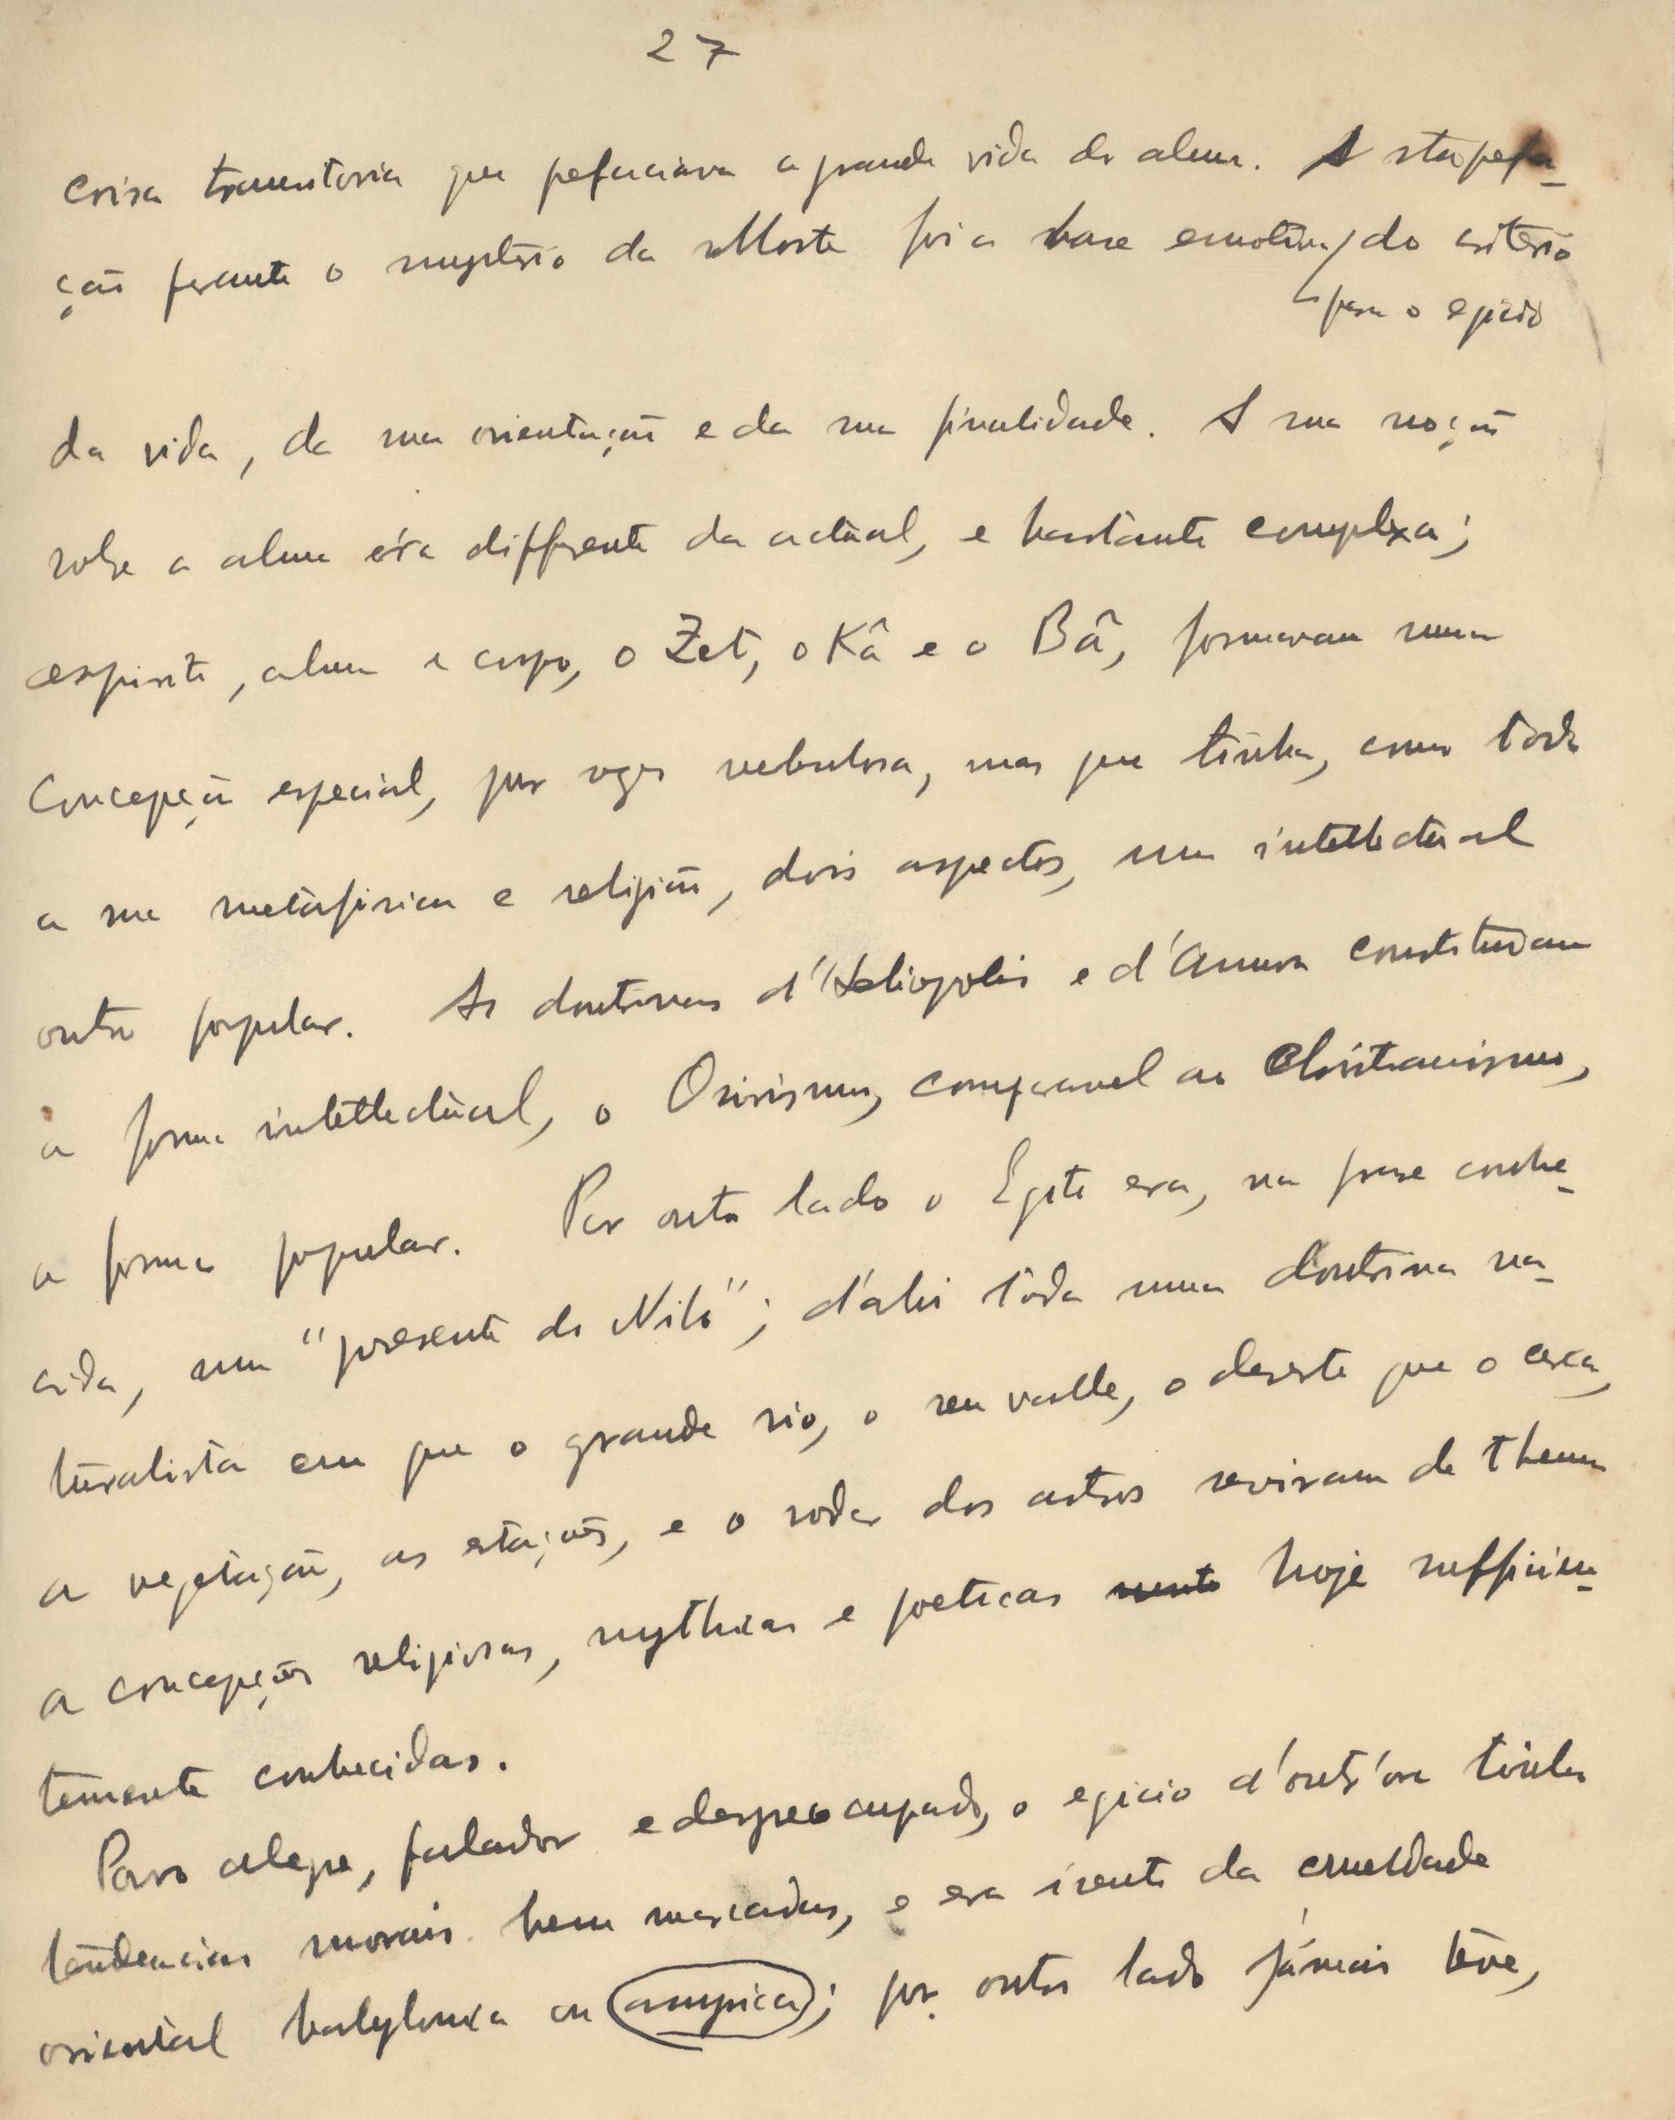 27
coisa transitoria que prefaciava a grande vida da alma. A stupefa-
ção perante o mysterio da Morte foi a base emotiva do criterio
para o egicio
da vida, da sua orientação e da sua finalidade. A sua noção
sobre a alma éra differente da actual, e bastante complexa;
espirito, alma e corpo, o Zet, o Kâ e o Bâ, formavam uma
concepção especial, por vezes nebulosa, mas que tinha, como toda
a sua metafisica e religião, dois aspectos, um intellectual
outro popular. As doutrinas d'Heliopolis e d'Amon constituiam
a forma intellectual, o Osirismo, comparavel ao Christianismo,
a forma popular. Por outro lado o Egito era, na frase conhe-
cida, um "presente do Nilo"; d'ahi toda uma doutrina na-
turalista em que o grande rio, o seu valle, o deserto que o cerca,
a vegetação, as estações, e o rodar dos astros serviram de thema
a concepções religiosas, mythicas e poeticas hoje sufficien-
temente conhecidas.
Povo alegre, falador e despreocupado, o egicio d'outr'ora tinha
tendencias morais bem marcadas, e era isento da crueldade
oriental babylonica ou assyrica; por outro lado jámais teve,